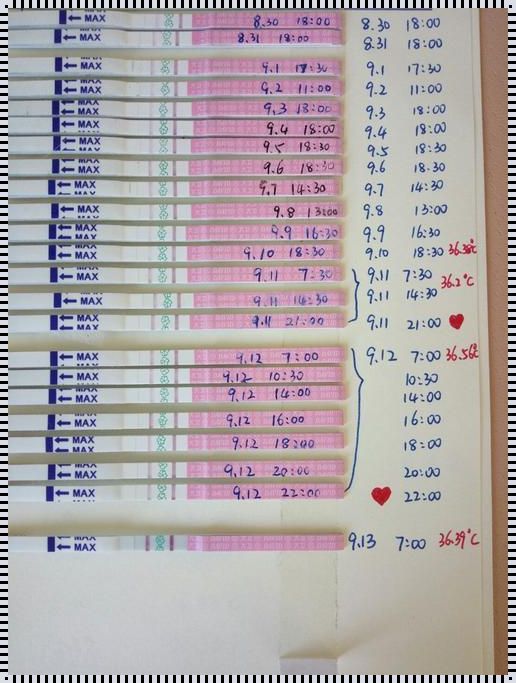 MAX 8.30 18:00 8.30 18:00
MAX 8.31 18:00 8.31 18:00
MAX 9.1 17:30 9.1 17:30
MAX 9.2 11:00 9.2 11:00
MAX 9.3 18:00 9.3 18:00
MAX 9.4 18:00 9.4 18:00
MAX 9.5 18:30 9.5 18:30
MAX 9.6 18:30 9.6 18:30
MAX 9.7 14:30 9.7 14:30
MAX 9.8 13:00 9.8 13:00
MAX 9.9 16:30 9.9 16:30
MAX 9.10 18:30 9.10 18:30 36.38°C
MAX 9.11 7:30 9.11 7:30 36.2°C
MAX 9.11 14:30 9.11 14:30
MAX 9.11 21:00 9.11 21:00
MAX 9.12 7:00 9.12 7:00 36.56℃
MAX 9.12 10:30 10:30
MAX 9.12 14:00 14:00
MAX 9.12 16:00 16:00
MAX 9.12 18:00 18:00
MAX 9.12 20:00 20:00
MAX 9.12 22:00 22:00
MAX 9.13 7:00 36.39°C
MAX